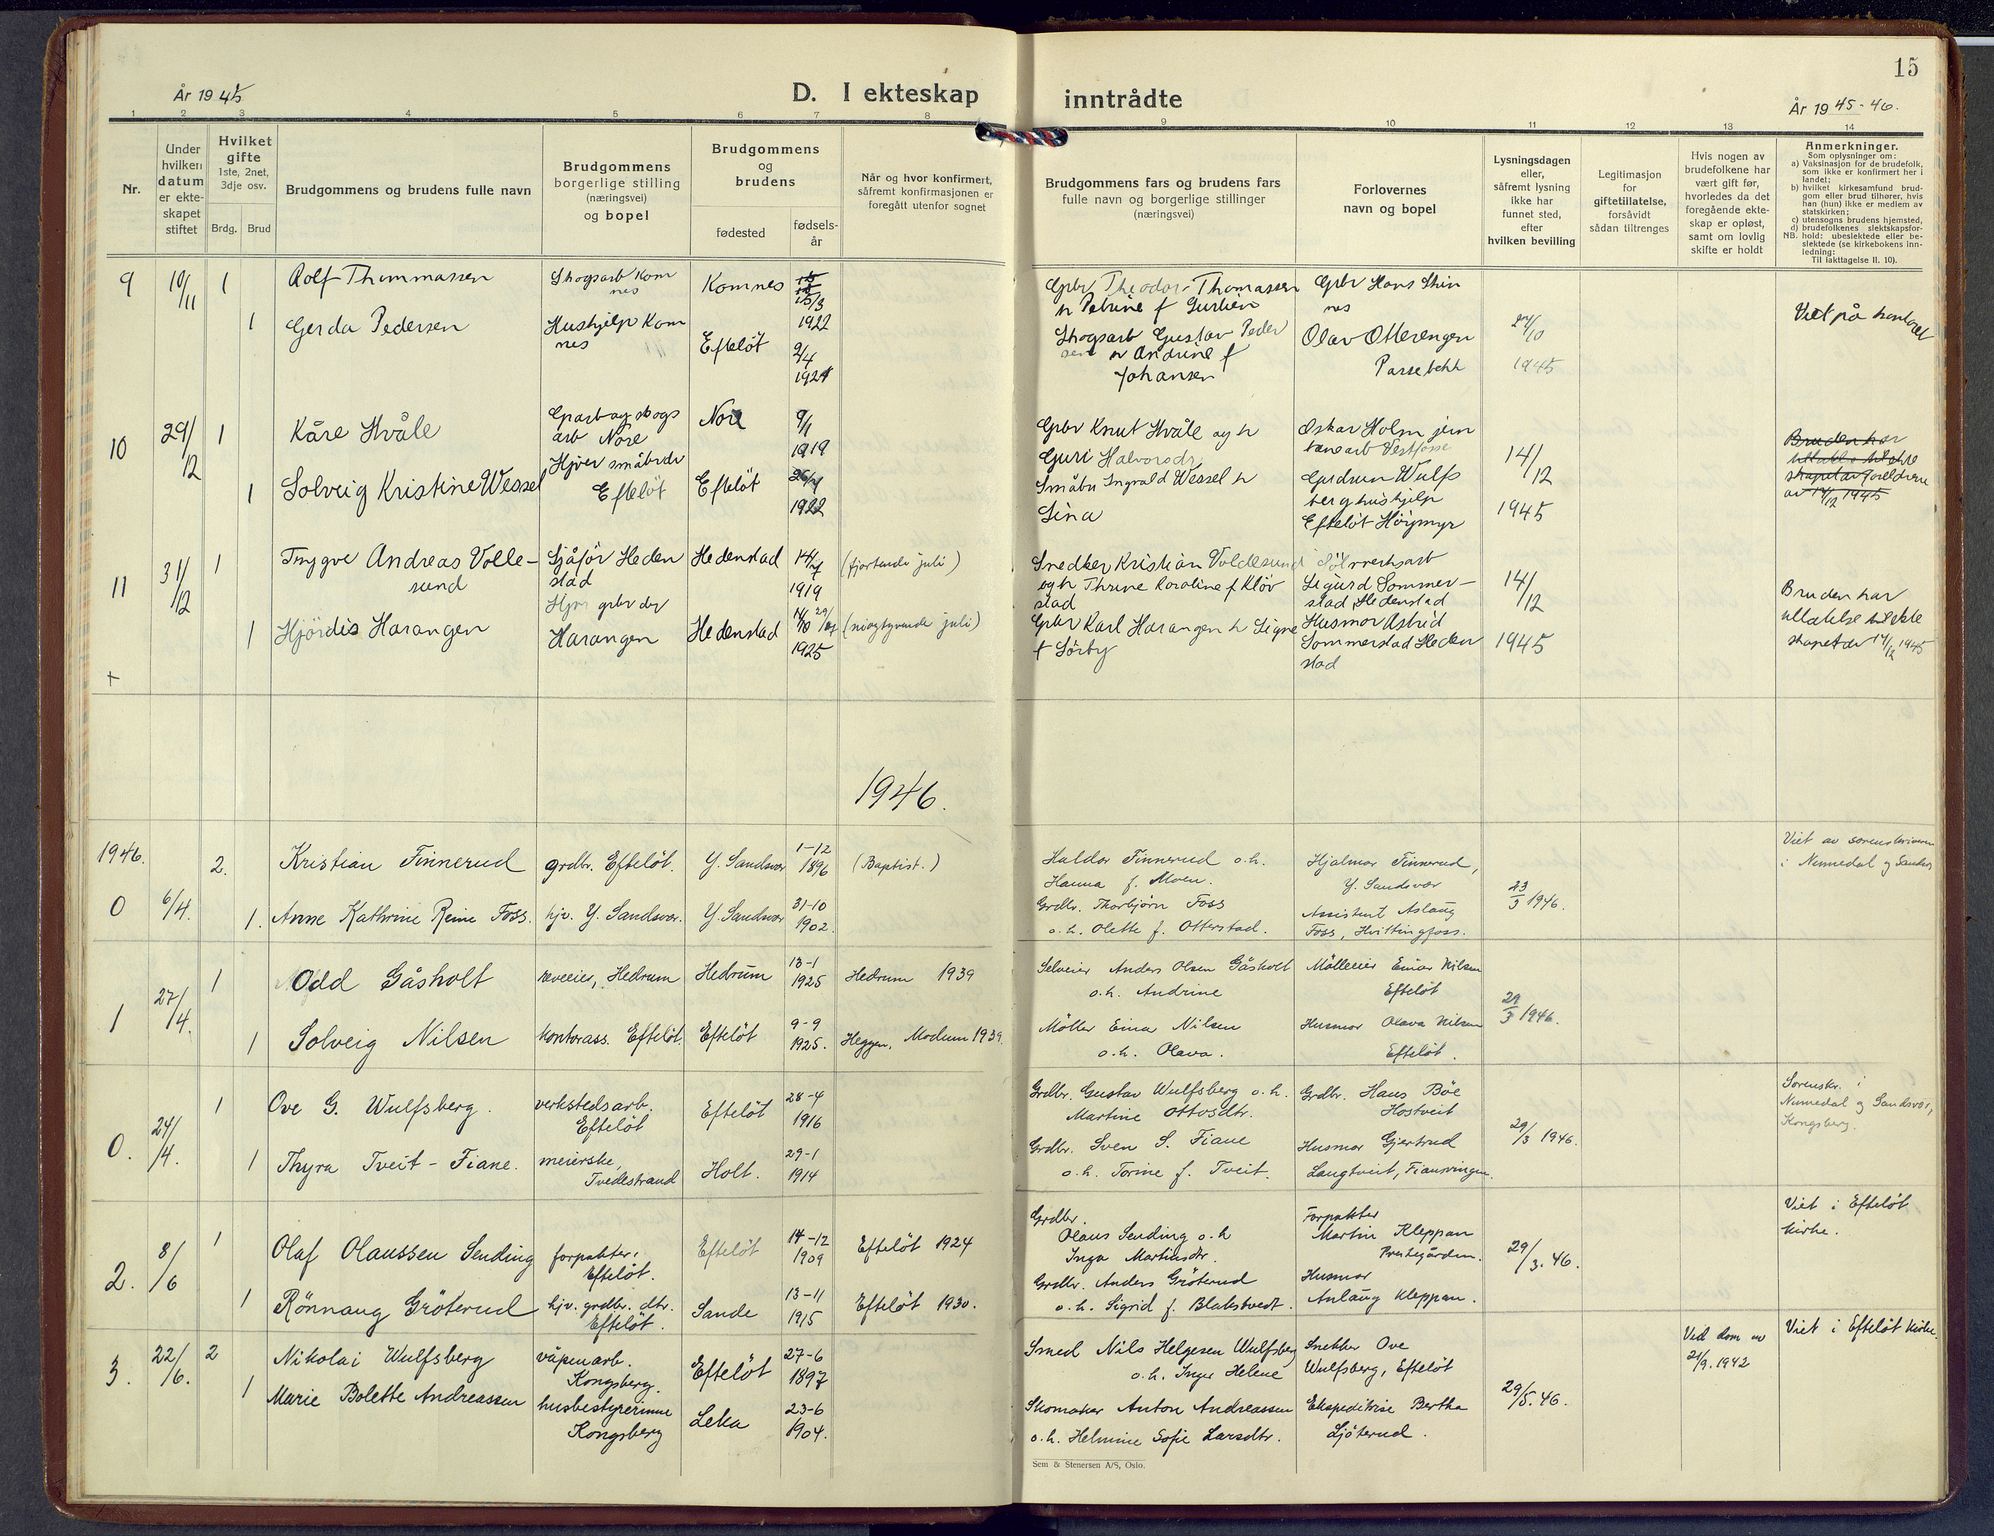 År 1945
D. I ekteskap
1 2 3 4 5 6 7 8
Nr.
Under hvilken datum er ekteskapet stiftet
Hvilket gifte
1ste, 2net, 3dje osv.
Brdg. Brud
Brudgommens og brudens fulle navn
Brudgommens
borgerlige stilling
(næringsvei)
og bopel
Brudgommens
og
brudens
fødested
fødselsår
Når og hvor konfirmert,
såfremt konfirmasjonen er
foregått utenfor sognet
9 10/11 1 Rolf Thommassen Skogsarb Komnes Komnes 15/3 1922
1 Gerda Pedersen Hushjelp Komnes Efteløt 2/4 1921
10 29/12 1 Kåre Hvåle Nore Nore 9/1 1919
1 Solveig Kristine Wessel Hjver småbrdr Efteløt Efteløt 1922
11 31/12 1 Trygve Andreas Vollesund Sjåför Hedenstad Hedenstad 14/7 1919 (fjortende juli)
1 Hjördis Harangen Hjv grbr dr Harangen Hedenstad 29/7 1925 (niogtyvende juli)
+
1946.
1946.
0 6/4. 2. Kristian Finnerud grdbr. Efteløt. Y. Sandsvær 1-12 1896 (Baptist.)
1. Anne Kathrine Reine Foss. hjv. Y. Sandsvær. Y. Sandsvær 31-10 1902.
1 27/4. 1 Odd Gåsholt Hedrum Hedrum 13-1 1925 Hedrum 1939
1 Solveig Nilsen kontorass. Efteløt. Efteløt 9-9 1925. Heggen, Modum 1939.
0. 24/4. 1 Ove G. Wulfsberg. verkstedsarb. Efteløt Efteløt 28-4 1916
1 Thyra Tveit-Fiane. meierske, Tvedestrand Holt. 29-1 1914
2. 8/6 1 Olaf Olaussen Sending forpakter, Efteløt. Efteløt 14-12 1909 Efteløt 1924
1 Rønnaug Grøterud hjv. grdbr. dtr. Efteløt. Sande 13-11 1915 Efteløt 1930.
3. 22/6. 2 Nikolai Wulfsberg våpenarb. Kongsberg. Efteløt 27-6 1897
1 Marie Bolette Andreassen husbestyrerinne Kongsberg Leka 23-6 1904.
15
inntrådte
År 1945-46.
9 10 11 12 13 14
Brudgommens fars og brudens fars
fulle navn og borgerlige stillinger
(næringsvei)
Forlovernes
navn og bopel
Lysningsdagen
eller,
såfremt lysning
ikke har
funnet sted,
efter
hvilken bevilling
Legitimasjon
for
giftetillatelse,
forsåvidt
sådan tiltrenges
Hvis nogen av
brudefolkene har
vært gift før,
hvorledes da det
foregående ekte-
skap er opløst,
samt om lovlig
skifte er holdt
Anmerkninger.
Som oplysninger om:
a) Vaksinasjon for de brudefolk,
som ikke er konfirmert her i
landet;
b) hvilket kirkesamfund brud-
gom eller brud tilhører, hvis
han (hun) ikke er medlem av
statskirken;
c) utensogns brudens hjemsted,
d) brudefolkenes slektskapsfor-
NB. hold: ubeslektede eller be-
slektede (se kirkebokens inn-
ledning:
Til iakttagelse II. 10).
Grbr Theodor Thomassen
Grbr Hans Skinnes
Skogsarb Gustav Pedersen
Andrine f Johansen
Olav Otterengen
Passebekk
24/10 1945
Viet på kontoret
Grbr Knut Hvåle og h
Guri Halvorsdr
Oskar Holm
Småbr Ingvald Wessel h
Lina
Gudrun Wulfsberg hushjelp
Efteløt
14/12 1945
Bruden har
av 14/12 1945
Snedker Kristian Voldesund
Thrine Karoline f Kløvstad
Sigurd Sommerstad, Hedenstad
14/12 1945
Grbr Karl Harangen h Signe
f Sørby
Husmor Astrid
Sommerstad Hedenstad
Bruden har
tillatelse til ekte
skapet av 14/12 1945
Haldor Finnerud o.h.
Hanna f. Moen.
Hjalmar Finnerud,
Y. Sandsvær
23/3 1946.
Viet av sorenskriveren
i Numedal og Sandsv
Grdbr. Thorbjørn Foss
o.h. Olette f. Otterstad.
Assistent Aslaug
Foss, Hvittingfoss.
Selveier Anders Olsen Gåsholt
o.h. Andrine
Mølleeier Einar Nilsen
Efteløt
29/3 1946.
Møller Einar Nilsen
o.h. Olava.
Husmor Olava Nilsen
Efteløt.
Grdbr. Gustav Wulfsberg o.h.
Martine Ottosdtr.
Grdbr. Hans Bøe
Hostveit
29/3 1946.
Sorenskr. i
Numedal og Sandsvær,
Kongsberg.
Grdbr. Sven S. Fiane
o.h. Torine f. Tveit.
Husmor Gjertrud
Langtveit, Fiansvingen.
Grdbr.
Olaus Sending o.h
Inga Martinsdtr
Forpakter
Martin Kleppan
Prestegården.
29/3. 46.
Viet i Efteløt
kirke.
Grdbr. Anders Grøterud
o.h. Sigrid f. Blakstvedt.
Husmor
Aslaug Kleppan.
Smed Nils Helgesen Wulfsberg
o.h. Inger Helene
Snekker Ove
Wulfsberg, Efteløt
29/5. 46.
Ved dom av
21/9. 1942
Viet i Efteløt kirke.
Skomaker Anton Andreassen
o.h. Helmine Sofie Larsdtr.
Ekspeditrise Bertha
Ljøterud.
Sem & Stenersen A/S, Oslo.